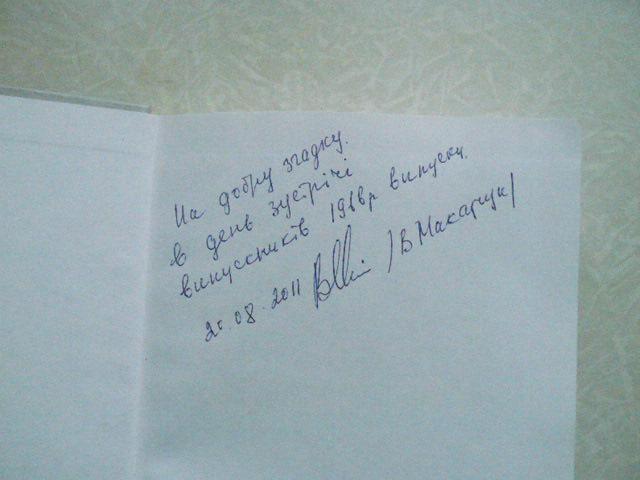 На добру згадку.
в день зустрічі
випускників 1966р випуску.
08.2011 /В Макарчук/